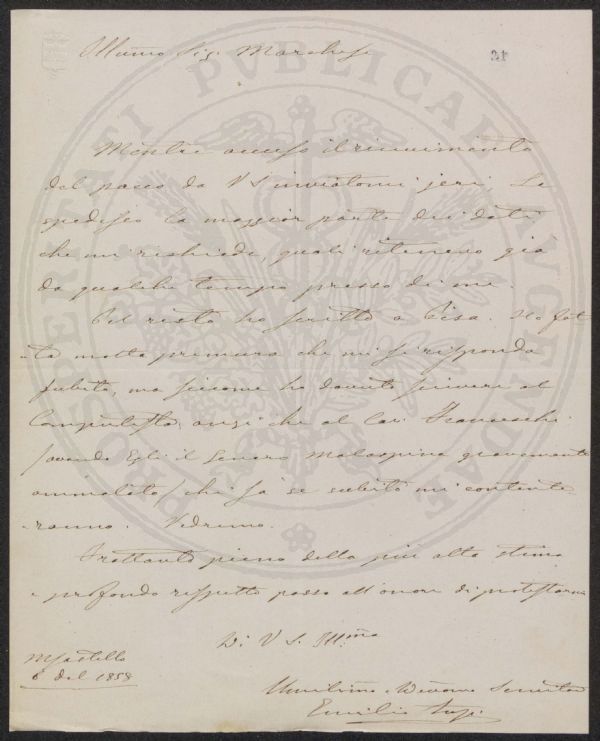 Illumo Sig. Marchese
31
Mentre accuso il ricevimento
del pacco da V S inviatomi jeri, Le
spedisco la maggior parte dei dati
che mi richiede, quali ritenevo già
da qualche tempo presso di me.
Del resto ho scritto a Pisa. Ho fat
-ta molta premura che mi si risponda
subito, ma siccome ho dovuto scrivere al
anzi che al Cav.
avendo Egli il Genero Malaspina gravemente
ammalato, chi sa se subito mi contente
-ranno. Vedremo.
Frattanto pieno della più alta stima
e profondo rispetto passo all'onore di protestarmi
Di V S. Ill.ma
6 del 1858
Servitor
Emilio
PROSPERITATI PUBLICAE AUGENDAE